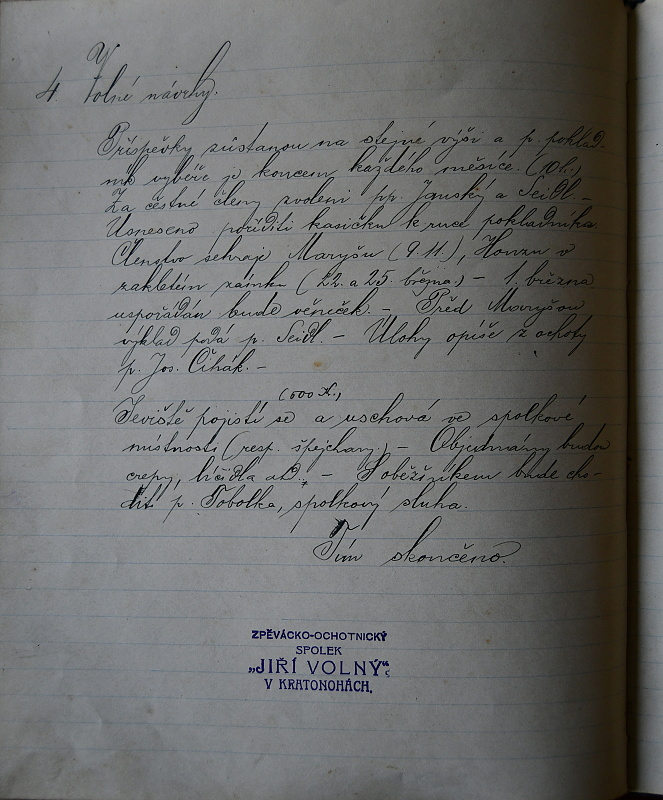 4. Volné návrhy.
Příspěvky zůstanou na stejné výši a p. poklad-
ník vybéře je koncem každého měsíce.
Za čestné členy zvoleni pp. Janský a Seidl. –
Usneseno poříditi kasičku k ruce pokladníka.
Členstvo sehraje Maryšu (9. 11.), Honzu v
zakletém zámku (22. a 25. března) – 1. března
uspořádán bude věneček. – Před Maryšou
výklad podá p. Seidl. – Úlohy opíše z ochoty
p. Jos. Čihák. –
(600 K.)
Jeviště pojistí se a uschová ve spolkové
místnosti (resp. špejchary) – Objednány budou
crepy, líčidla atd. – S oběžníkem bude cho-
dit p. Tobolka, spolkový sluha.
Tím skončeno.
ZPĚVÁCKO-OCHOTNICKÝ
SPOLEK
„JIŘÍ VOLNÝ“
V KRATONOHÁCH.